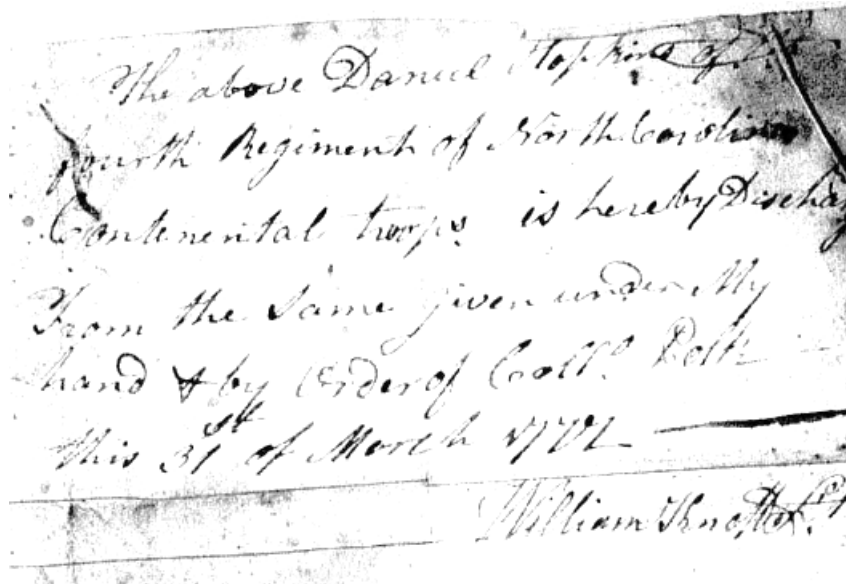 The above Daniel Hopkins of
fourth Regiment of North Carolina
Continental troops is hereby Discha
From the Same given under My
hand & by Order of Collo. Polk
this 31st of March 1777
William Knott